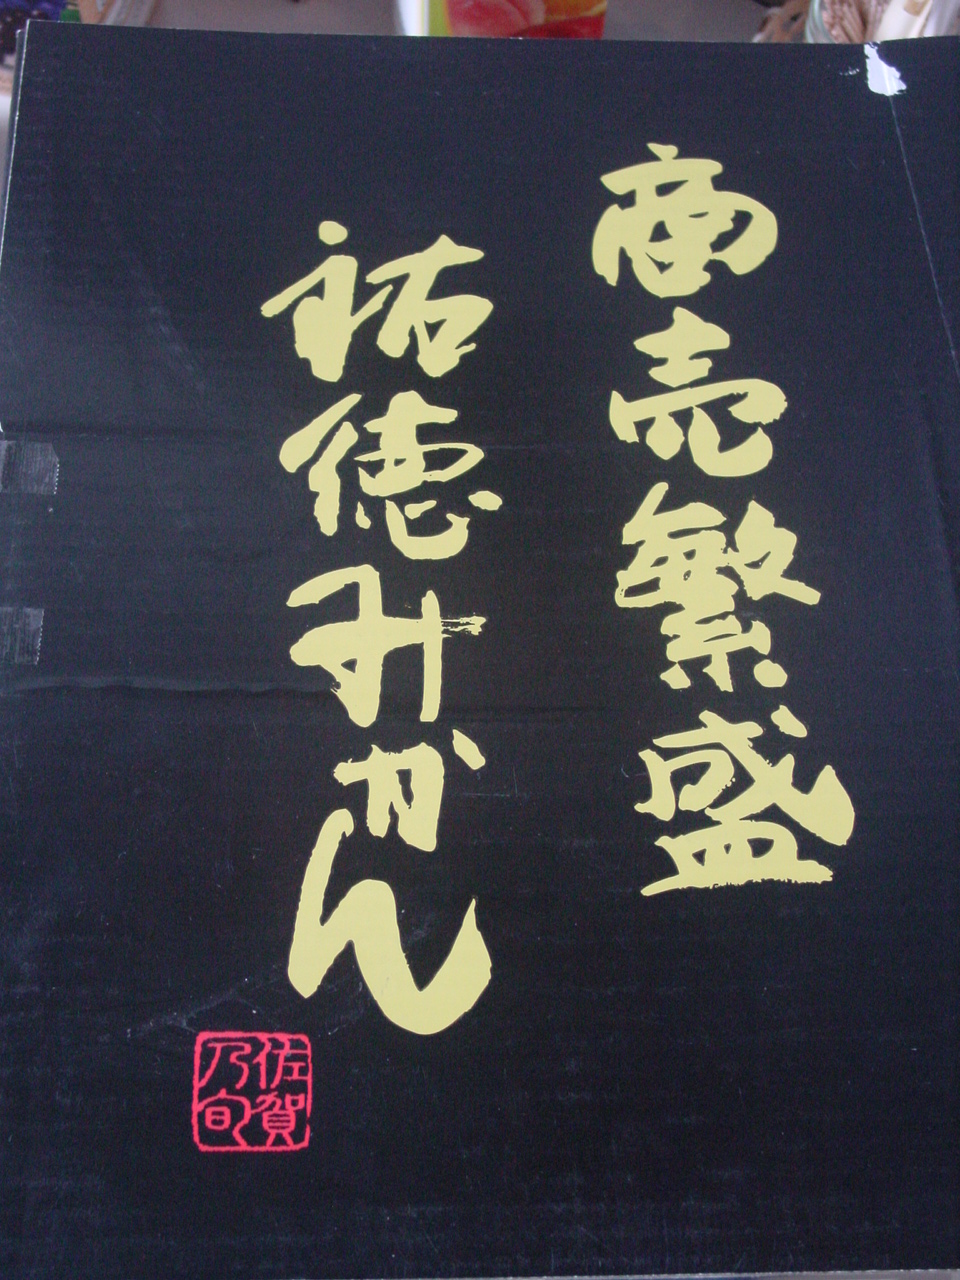 商売繁盛
祐徳みかん
佐賀
乃旬